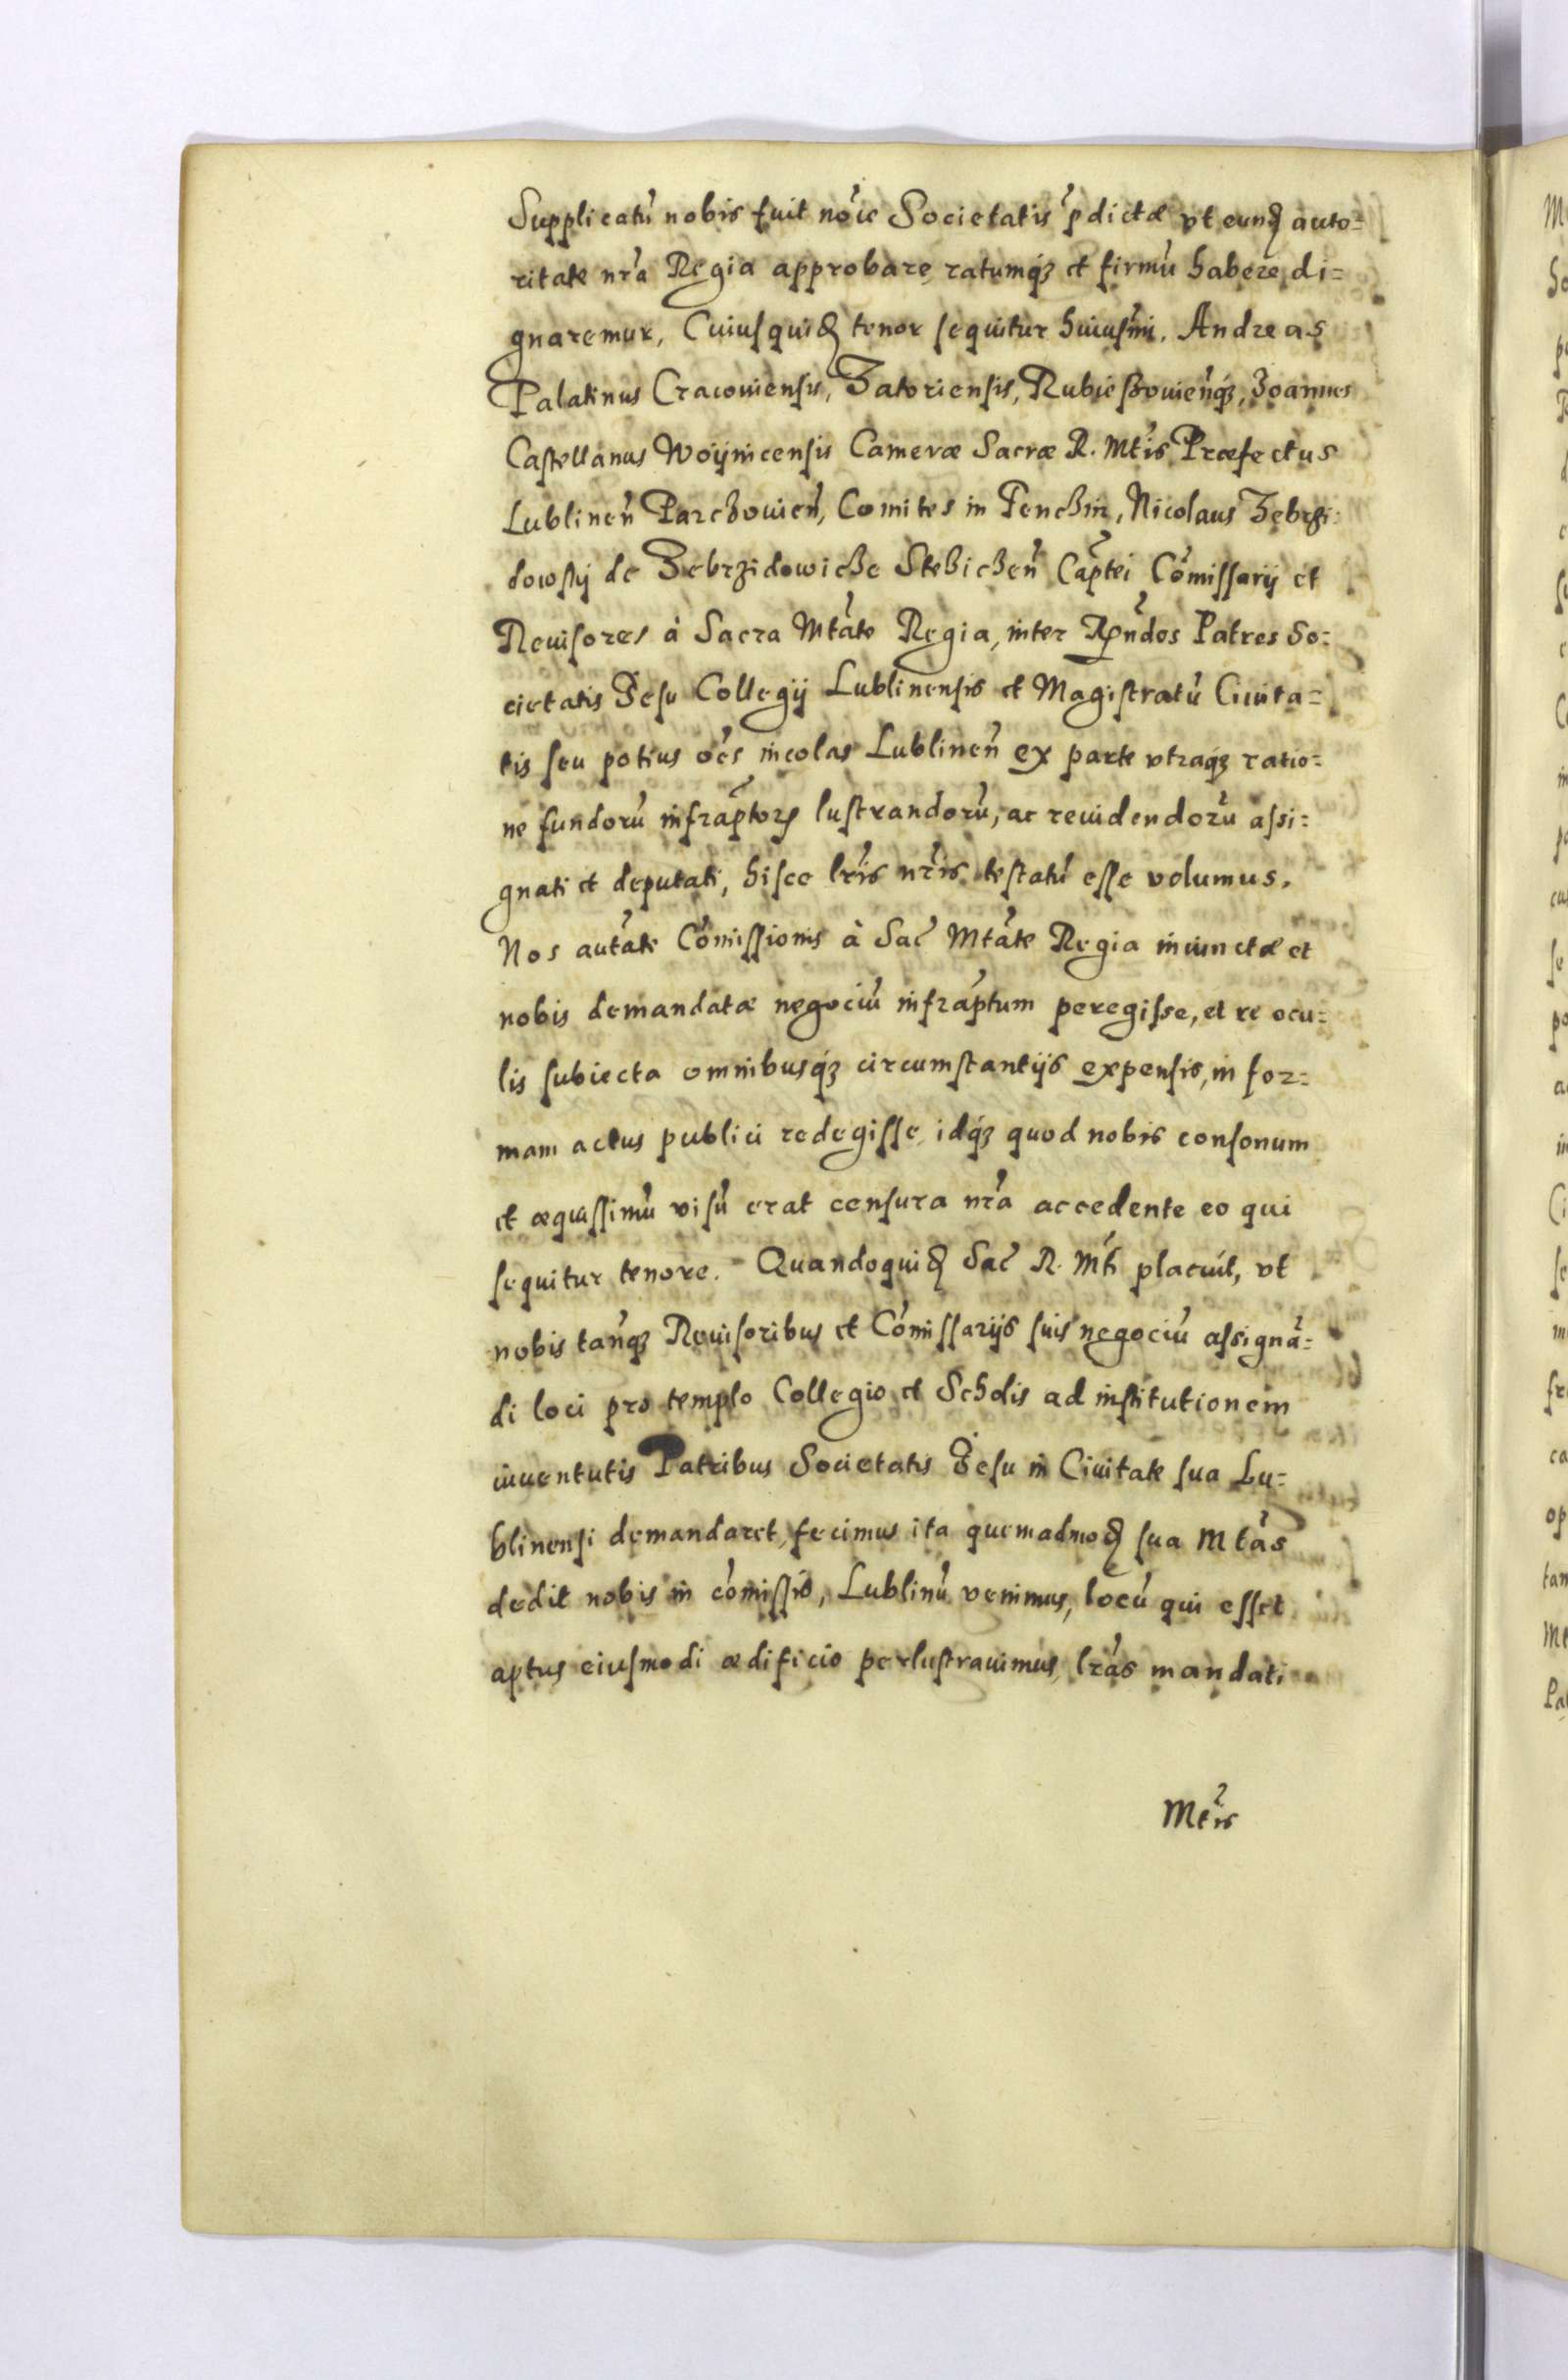 Supplicatũ nobis fuit nõie Societatis p̃dictæ vt eunđ auto=
ritate nr̃a Regia approbare, ratumq́ʒ et firmũ habere di=
gnaremur, Cuius quiđ tenor sequitur huiusm̃i. Andreas
Palatinus Cracouiensis, Zatoriensis, Rubieszouieñq́ʒ, Joannes
Castellanus Woijnicensis Cameræ Sacræ R. Mt̃is Præfectus
Lublineñ Parczouieñ, Comites in Tenczin, Nicolaus Zebrzi
dowskj de Zebrzidowicze Steziczeñ Cap̃tei Com̃issarij et
Reuisores à Sacra Mtãte Regia, inter Rp̃ndos Patres So=
cietatis Jesu Collegij Lublinensis et Magistratũ Ciuita=
tis seu potius oẽs incolas Lublineñ ex parte vtraq́ʒ ratio=
ne fundorũ infrap̃torꝝ lustrandorũ, ac reuidendorũ assi=
gnati et deputati, hisce lr̃is nr̃is testatũ esse volumus.
Nos autãte Com̃issionis à Sac̃ Mtãte Regia iniunctæ et
nobis demandatæ negociũ infrap̃tum peregisse, et re ocu=
lis subiecta omnibusq́ʒ circumstantijs expensis, in for=
mam actus publici redegisse, idq́ʒ quod nobis consonum
et æquissimũ visũ erat censura nr̃a accedente eo qui
sequitur tenore. Quandoquiđ Sac̃ R. Mt̃i placuit, vt
nobis tanq̃ʒ Reuisoribus et Com̃issarijs suis negociũ assignã=
di loci pro templo Collegio et Scholis ad institutionem
iuuentutis Patribus Societatis Jesu in Ciuitate sua Lu=
blinensi demandaret, fecimus ita quemadmođ sua Mtãs
dedit nobis in com̃issis, Lublinũ venimus, locũ qui esset
aptus eiusmodi ædificio perlustrauimus, lr̃as mandati
Mt̃is